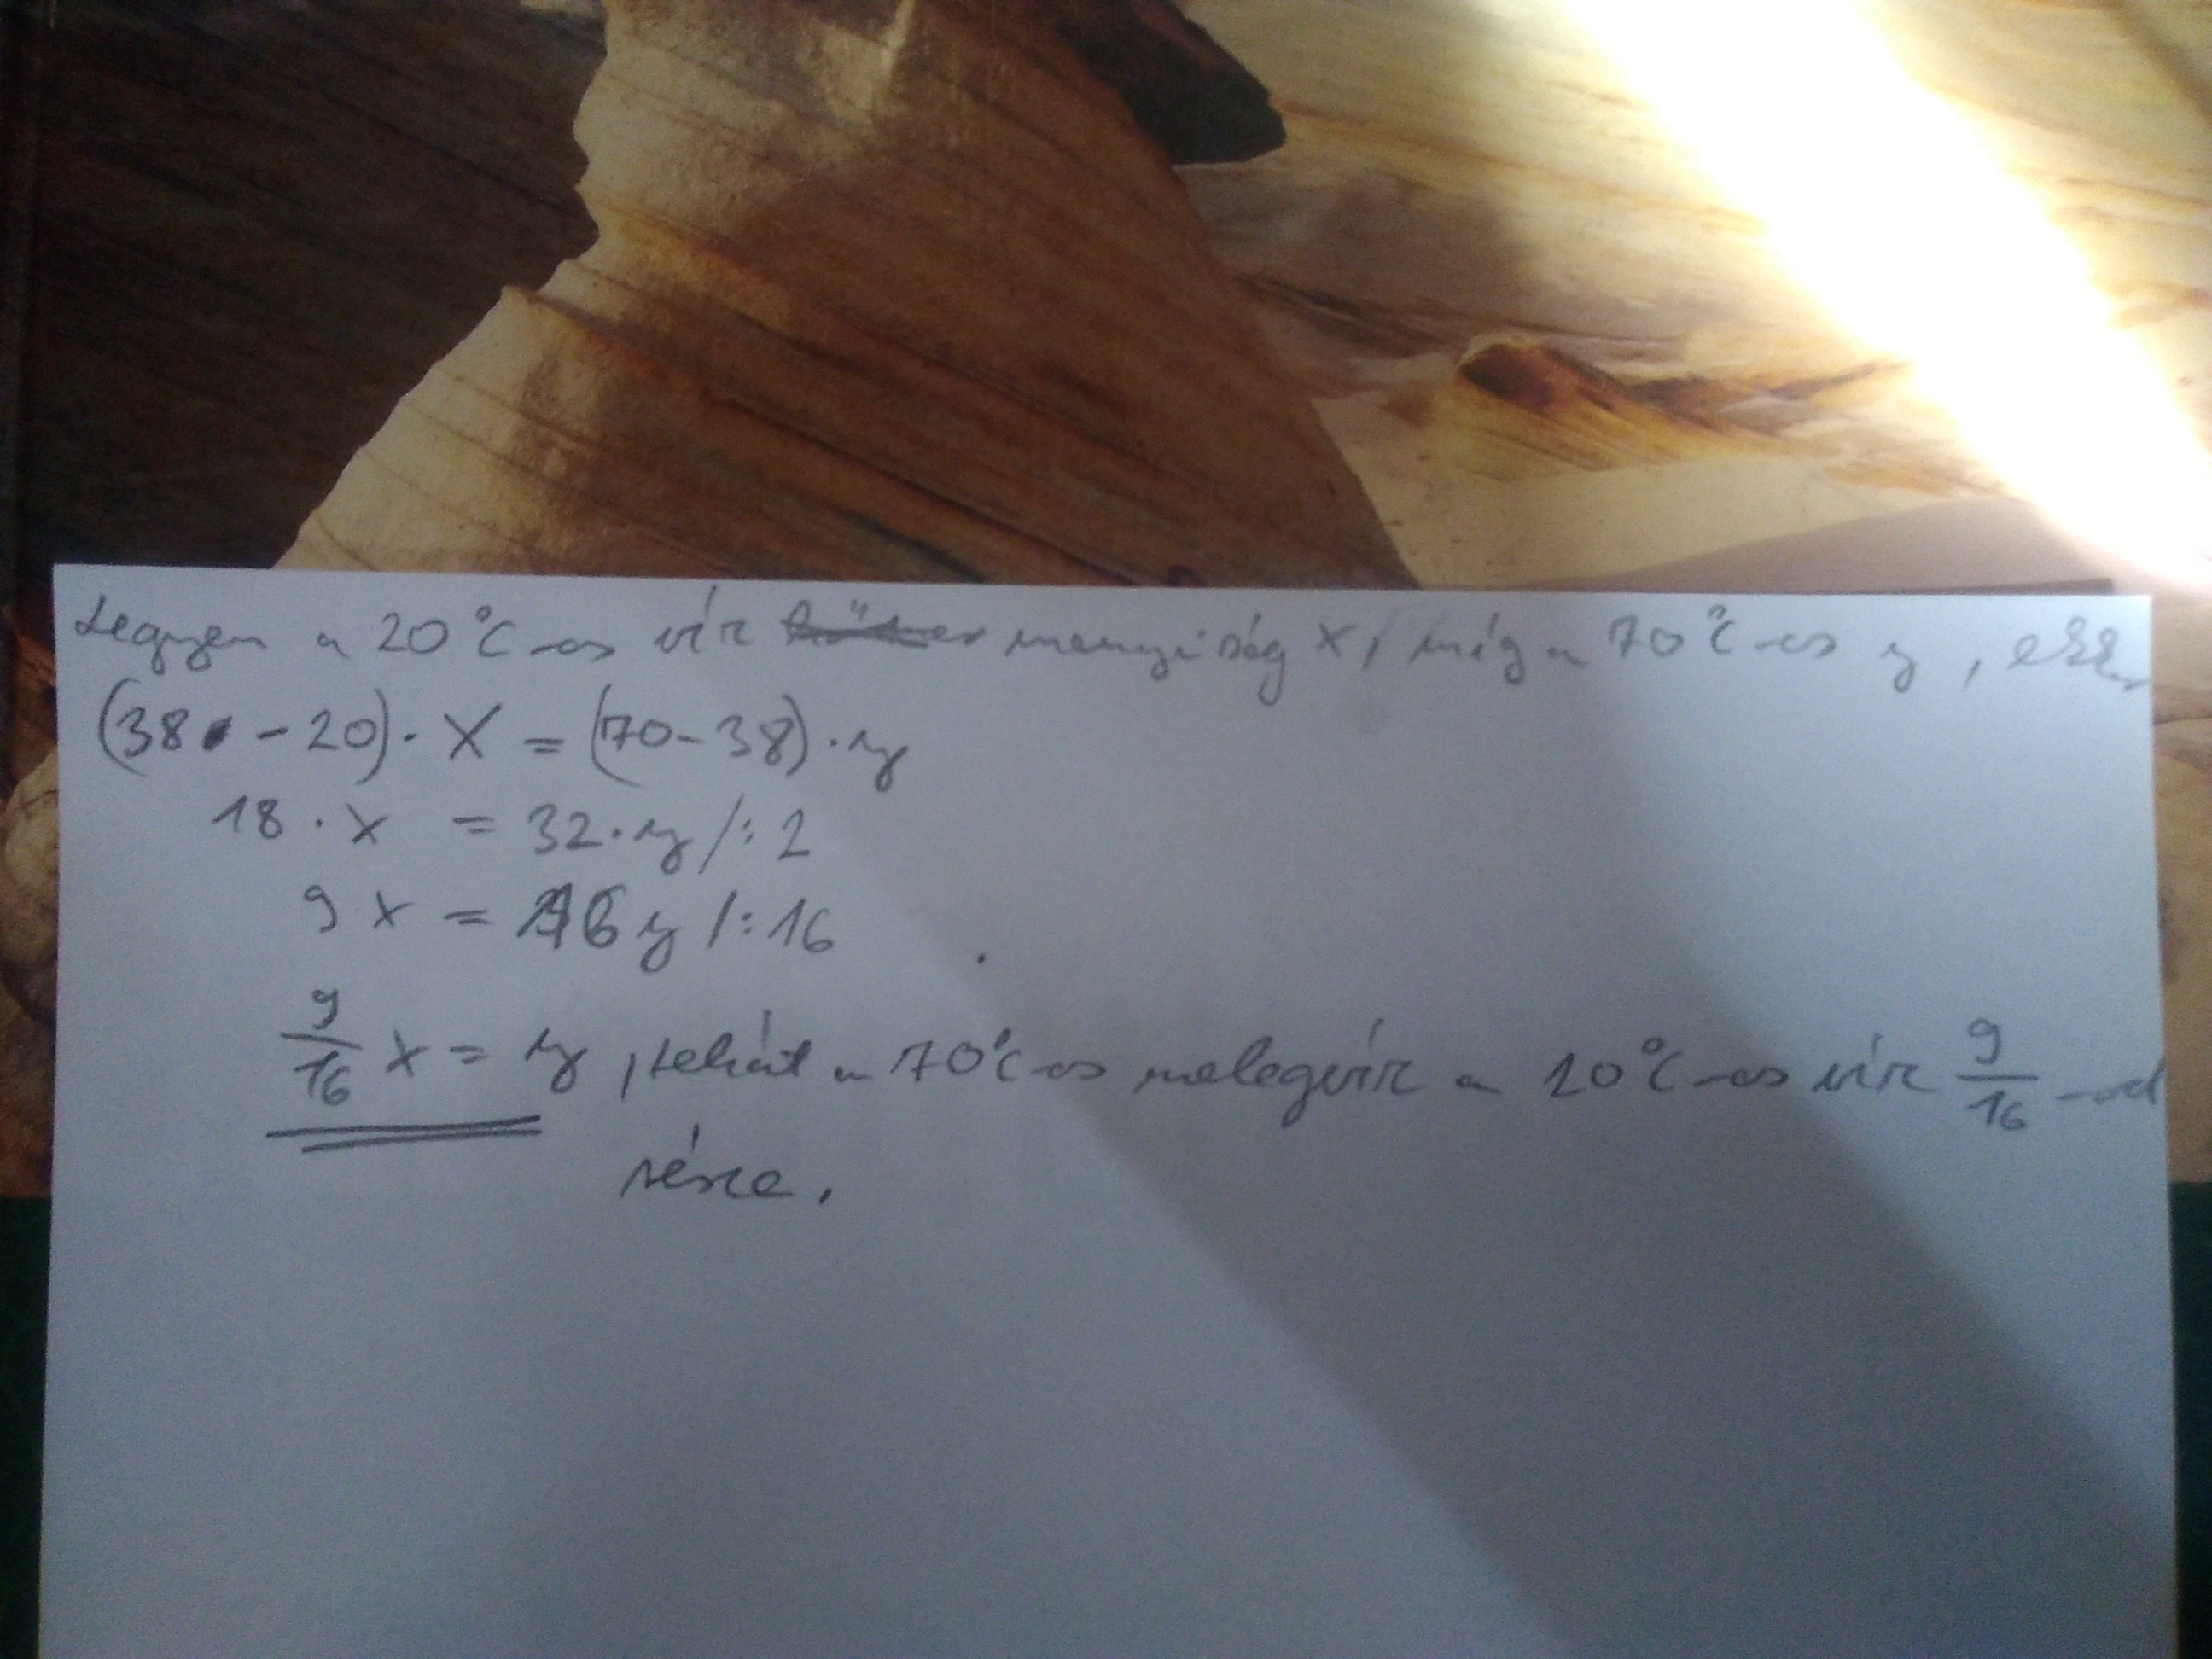 Legyen a 20°C-os víz menyiség x, míg a 70°C-os y, ekkor
(38 - 20) · x = (70 - 38) · y
18 · x = 32 · y /: 2
9 x = 16 y /: 16
9/16 x = y, tehát a 70°C-os melegvíz a 20°C-os víz 9/16-od
része.